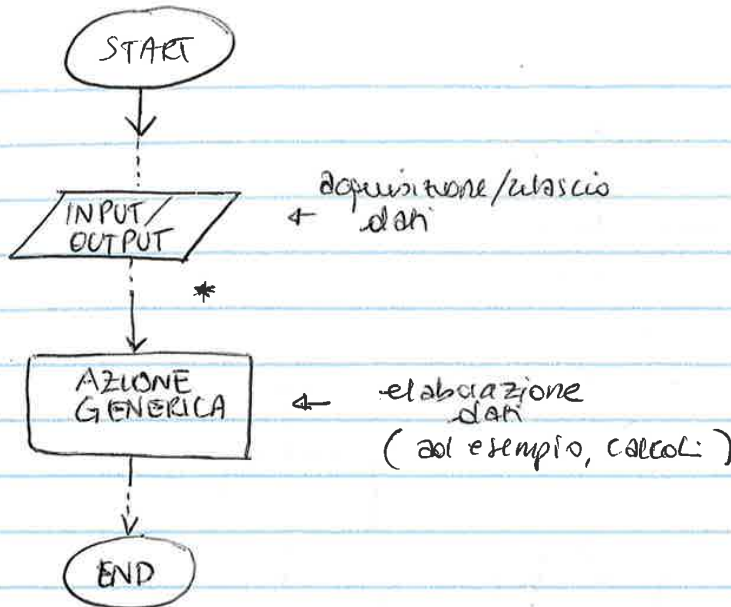 START
INPUT/
OUTPUT
← acquisizione/rilascio
dati
*
AZIONE
GENERICA
← elaborazione
dati
(ad esempio, calcoli)
END